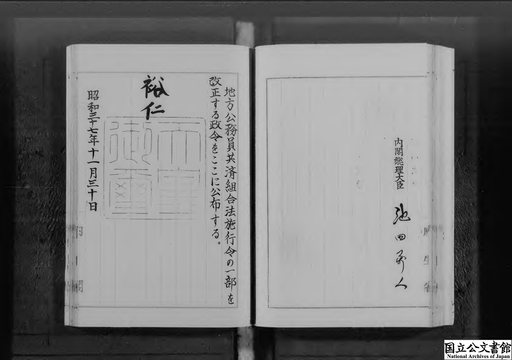 内閣総理大臣
池田勇人
地方公務員共済組合法施行令の一部を
改正する政令をここに公布する。
裕仁
昭和三十七年十一月三十日
国立公文書館
National Archives of Japan